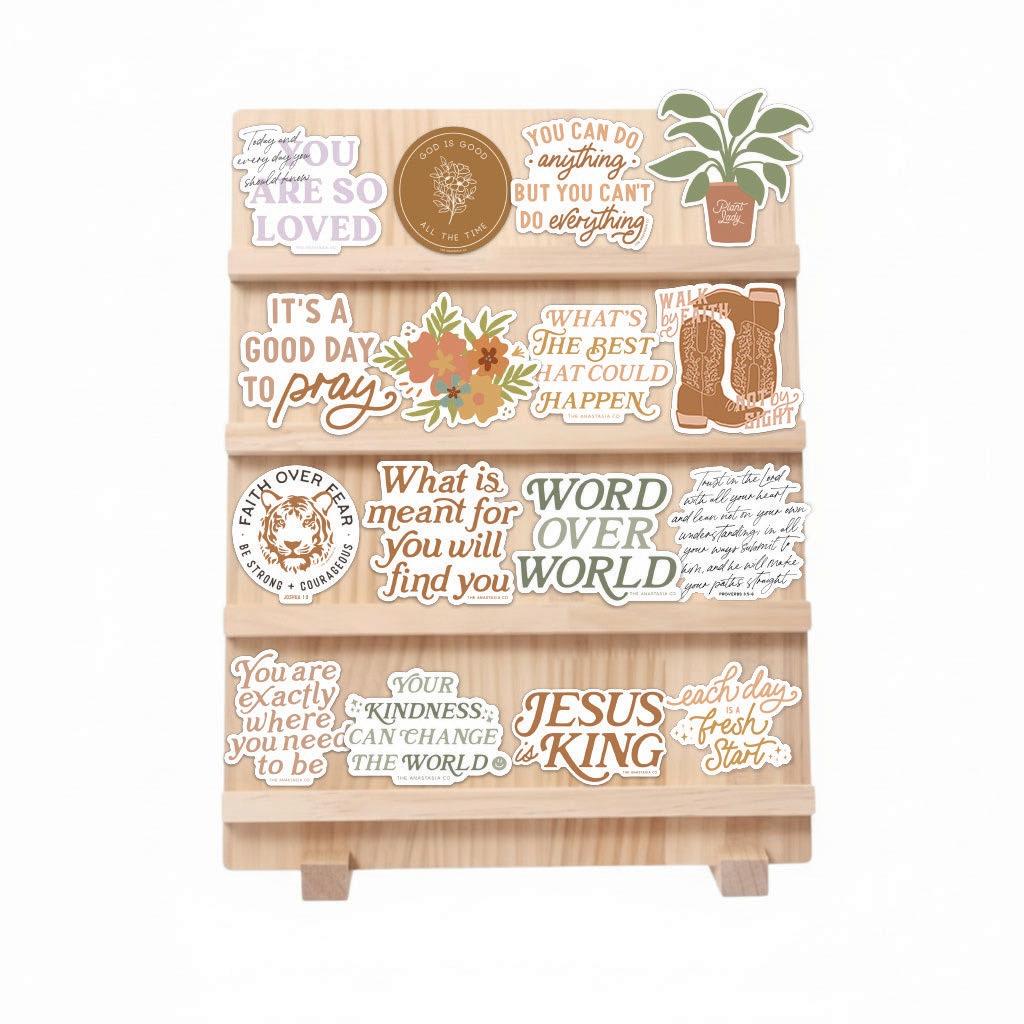 Today and
every day you
should know
YOU
ARE SO
LOVED
THE ANASTASIA CO
GOD IS GOOD
ALL THE TIME
THE ANASTASIA CO
YOU CAN DO
anything
BUT YOU CAN'T
DO everything
Plant
Lady
IT'S A
GOOD DAY
TO pray
WHAT'S
THE BEST
HAT COULD
HAPPEN
THE ANASTASIA CO
WALK
by FAITH
NOT by
SIGHT
FAITH OVER FEAR
· BE STRONG + COURAGEOUS ·
JOSHUA 1:9
What is
meant for
you will
find you
THE ANASTASIA CO
WORD
OVER
WORLD
THE ANASTASIA CO
Trust in the Lord
with all your heart
and lean not on your own
understanding; in all
your ways submit to
him, and he will make
your paths straight
PROVERBS 3:5-6
You are
exactly
where
you need
to be
THE ANASTASIA CO
YOUR
KINDNESS
CAN CHANGE
THE WORLD
THE ANASTASIA CO
JESUS
is KING
THE ANASTASIA CO
each day
IS A
fresh
Start